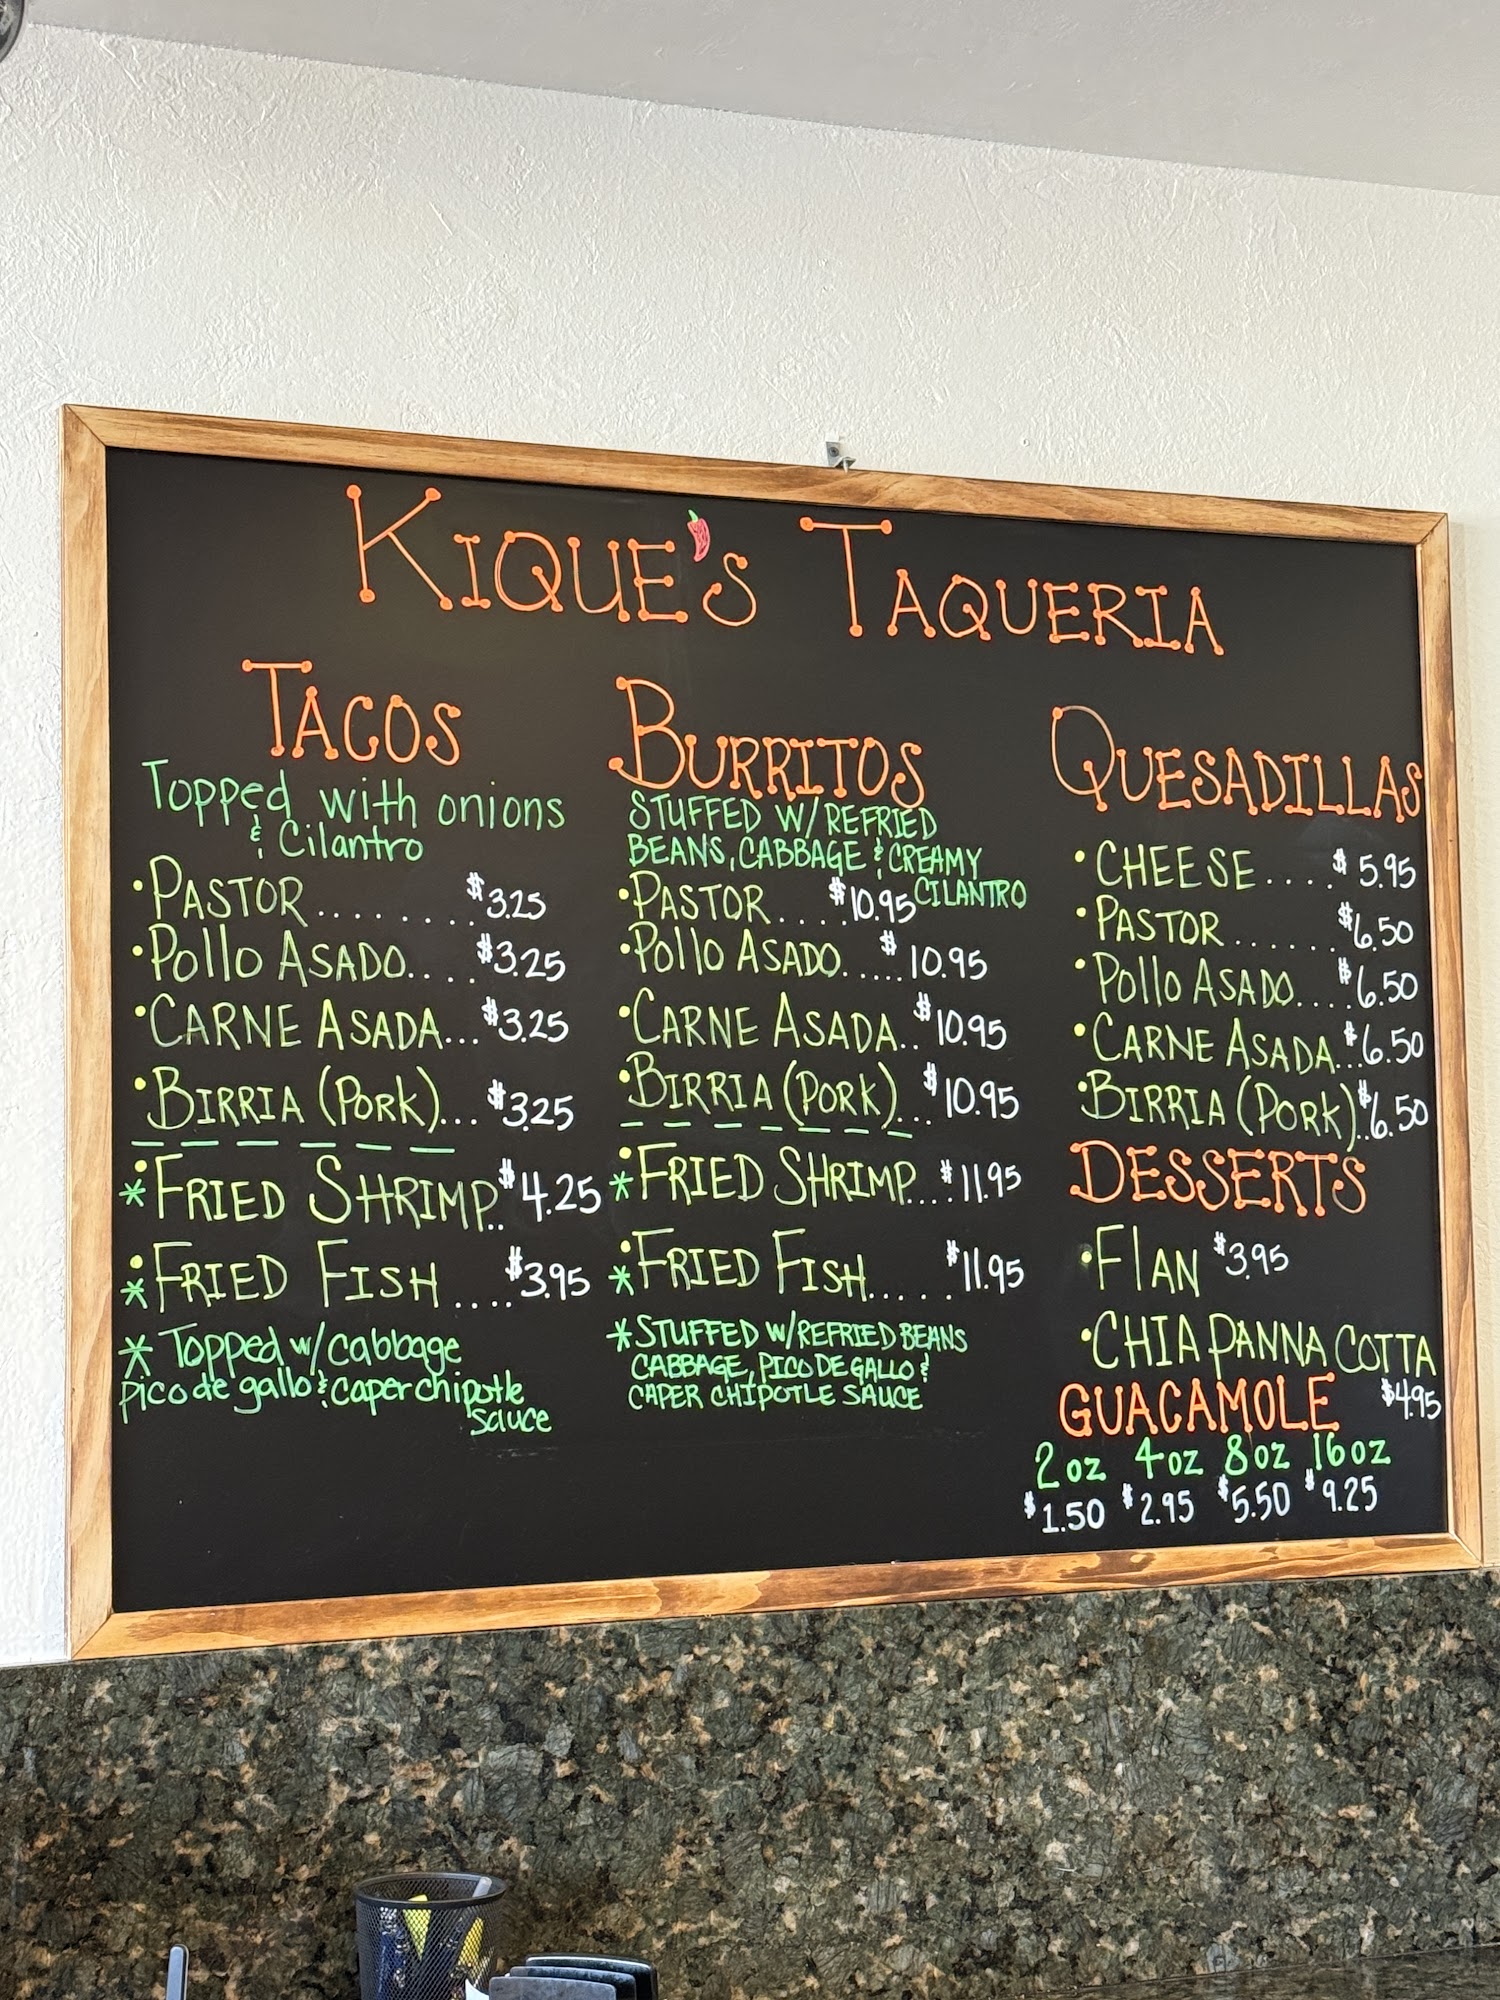 KIQUE'S TAQUERIA
TACOS
Topped with onions
& Cilantro
• PASTOR........ $3.25
• Pollo ASADO.... $3.25
• CARNE ASADA... $3.25
• BIRRIA (Pork)... $3.25
* • FRIED SHRIMP.. $4.25
* • FRIED FISH .... $3.95
* Topped w/cabbage
pico de gallo & caper chipotle
sauce
BURRITOS
STUFFED W/REFRIED
BEANS, CABBAGE & CREAMY
CILANTRO
• PASTOR.... $10.95
• Pollo ASADO..... $10.95
• CARNE ASADA.. $10.95
• BIRRIA (PORK)... $10.95
* • FRIED SHRIMP.... $11.95
* • FRIED FISH...... $11.95
* STUFFED W/REFRIED BEANS
CABBAGE, PICO DE GALLO &
CAPER CHIPOTLE SAUCE
QUESADILLAS
• CHEESE.... $5.95
• PASTOR...... $6.50
• Pollo ASADO.... $6.50
• CARNE ASADA.. $6.50
• BIRRIA (PORK).. $6.50
DESSERTS
• FlAN $3.95
• CHIA PANNA COTTA
$4.95
GUACAMOLE
2 oz 4 oz 8 oz 16 oz
$1.50 $2.95 $5.50 $9.25